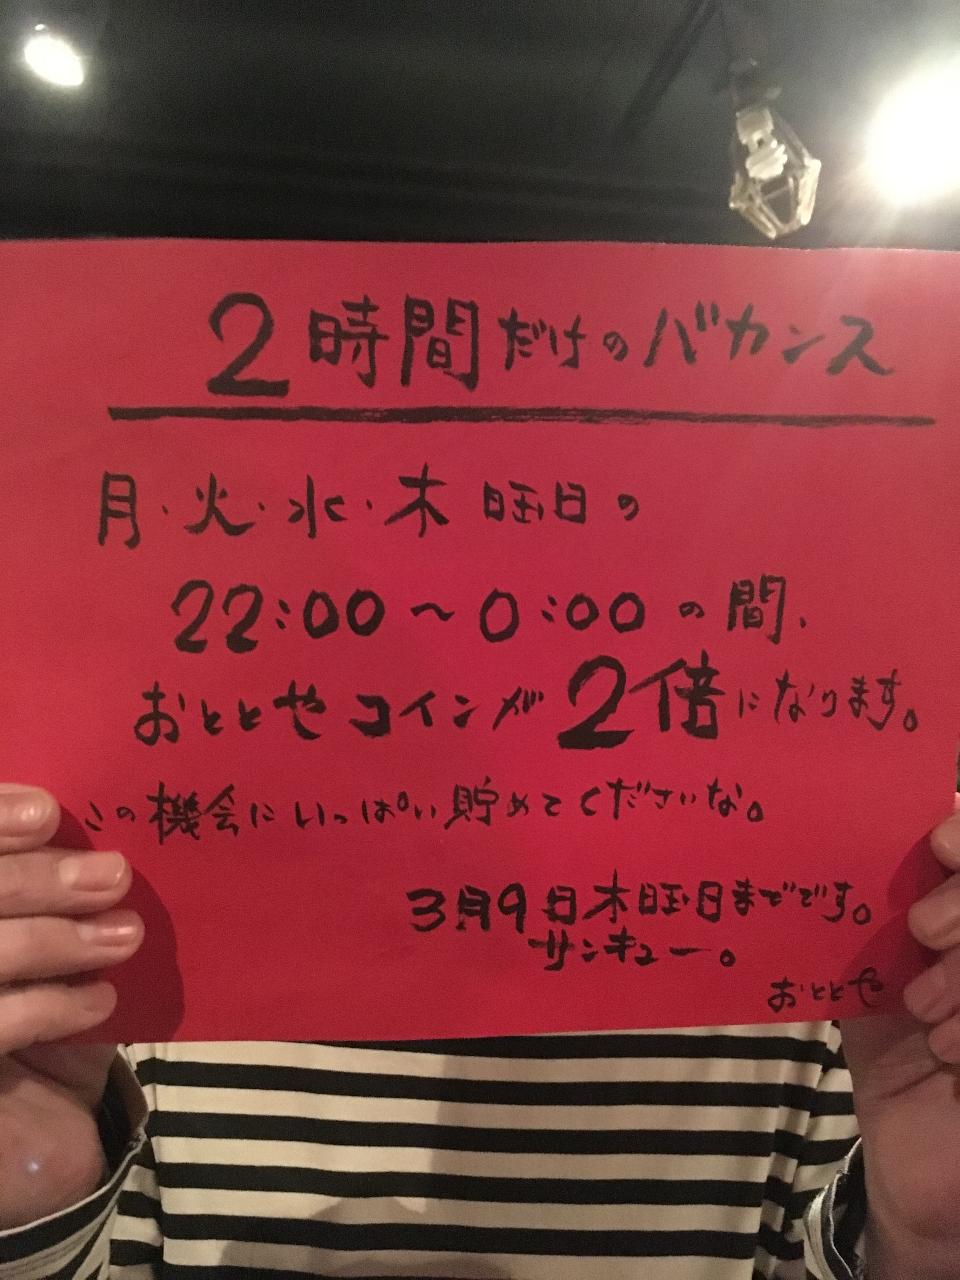 2時間だけのバカンス
月・火・水・木曜日の
22:00〜0:00の間、
おととやコインが2倍になります。
この機会にいっぱい貯めてくださいな。
3月9日木曜日までです。
サンキュー。
おととや